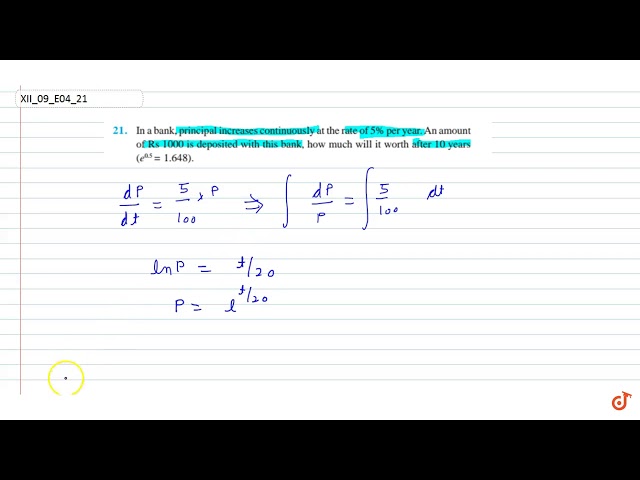 XII_09_E04_21
21. In a bank, principal increases continuously at the rate of 5% per year. An amount
of Rs 1000 is deposited with this bank, how much will it worth after 10 years
(e^0.5 = 1.648).
dP/dt = 5/100 × P ⇒ ∫ dP/P = ∫ 5/100 dt
ln P = t/20
P = e^t/20